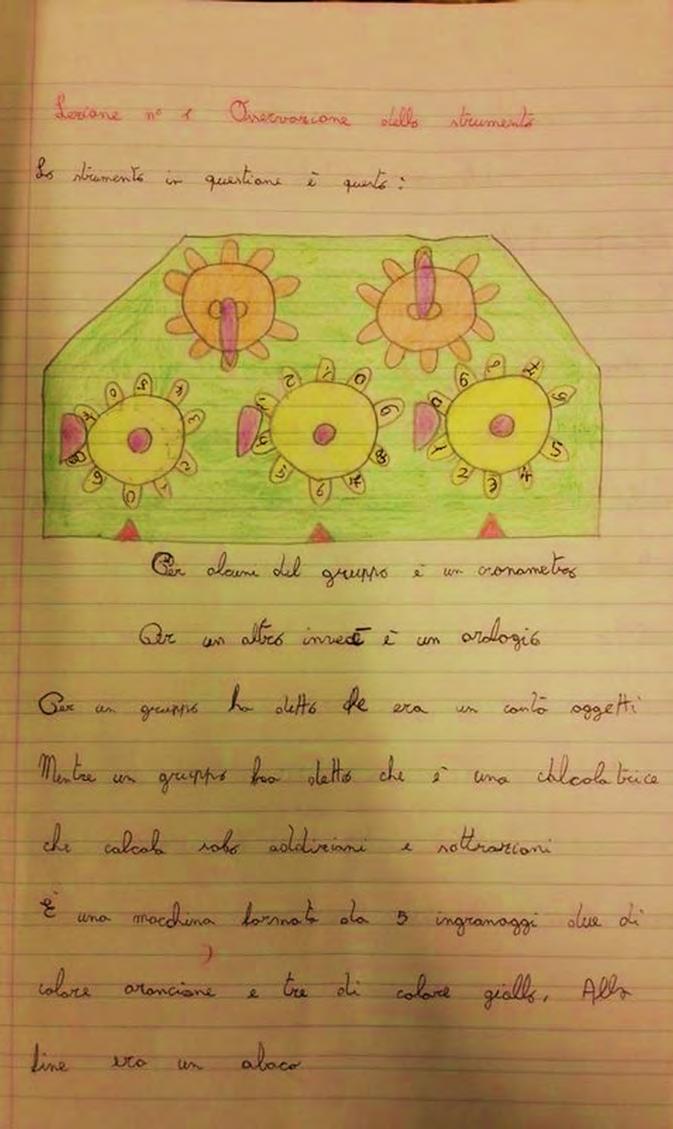 Lezione n° 1 Osservazione dello strumento
Lo strumento in questione è questo:
Per alcuni del gruppo è un cronometro
Per un altro invece è un orologio
Per un gruppo ha detto che era un conta oggetti
Mentre un gruppo ha detto che è una chlcolatrice
che calcola solo addizioni e sottrazioni
È una macchina formata da 5 ingranaggi due di
colore arancione e tre di colore giallo. Alla
fine era un abaco